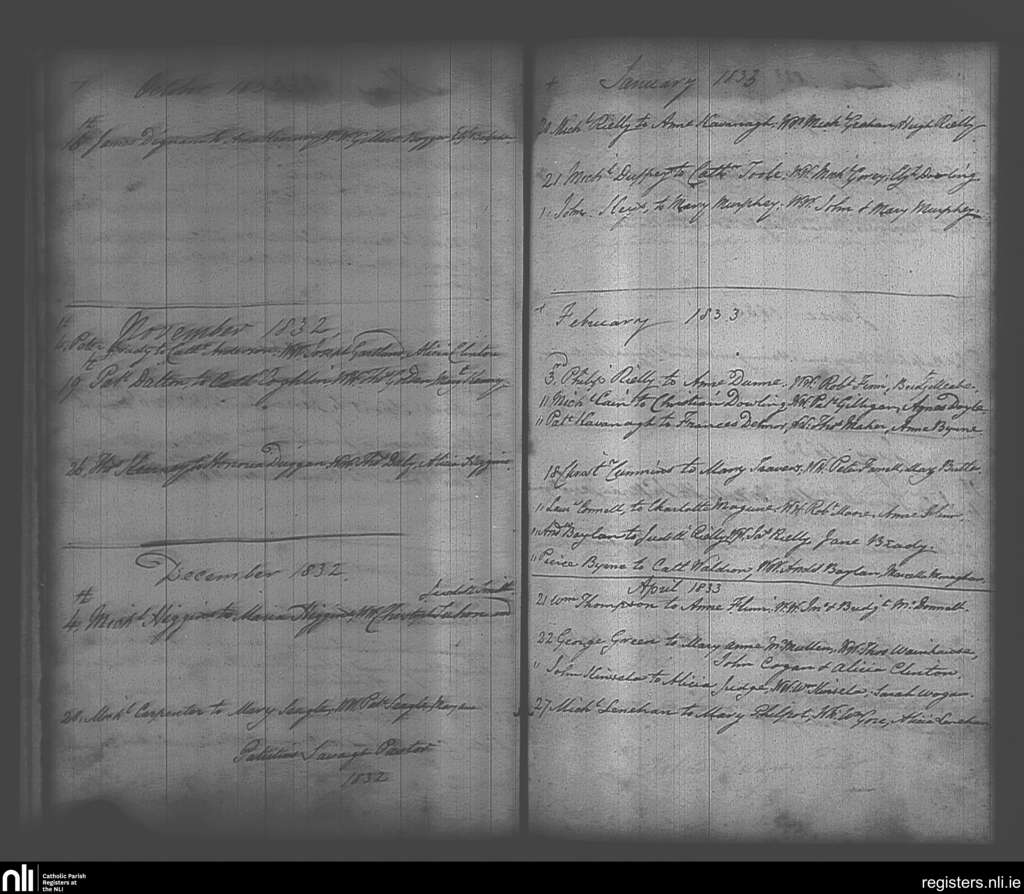 October 1832
18th James to
November 1832
Peter Grady to Cathn Anderson WW Joseph Gartland, Alicia Clinton
19th Patk Dalton to Cathn Coghlin WW Thos
26 Thos Kinney to Honoria Duggan WW Thos Daly, Alicia Higgins
December 1832.
Judith Smith
4th Michl Higgins to Maria Higgins WW Christopr and
28. Michl Carpenter to Mary Seagle, WW Patk Seagle,
Patritius Savage Pastor
1832
+ January 1833
20 Michl Rielly to Anne Kavanagh, WW Michl Graham, Hugh Rielly
21 Michl Duffey to Cathn Toole. WW Michl Gorey, Dowling
" John to Mary Murphey. WW. John & Mary Murphey.
+ February 1833
3rd. Philip Rielly to Anne Dunne. WW. Robt Finn, Bridgt
" Michl Cain to Christian Dowling, WW Patk Gilligan, Agnes Doyle,
" Patk Kavanagh to Frances WW Thos Maher, Anne Byrne.
18 Christr Cummins to Mary Travers, WW. Peter Farrell, Mary Butler
" Lawr Connell, to Charlotte Maguire. WW Robt Moore, Anne Flinn.
" Andw Boylan to Judith Rielly WW. Jas Rielly Jane Brady.
" Peirce Byrne to Cath Waldron, WW. Andw Boylan, Marcella Monaghan.
April 1833
21 Wm Thompson to Anne Flinn, WW. Jno & Bridgt McDonnell.
22 George Green to Mary anne McMullen, WW. Thos Wainhouse,
John Cogan & Alicia Clinton.
" John Kinsela to Alicia Judge, WW Wm Kinsela, Sarah Wogan.
27 Michl Lenehan to Mary Philpot, WW. Wm Gore, Alicia Lenehan
nli
Catholic Parish
Registers at
the NLI
registers.nli.ie